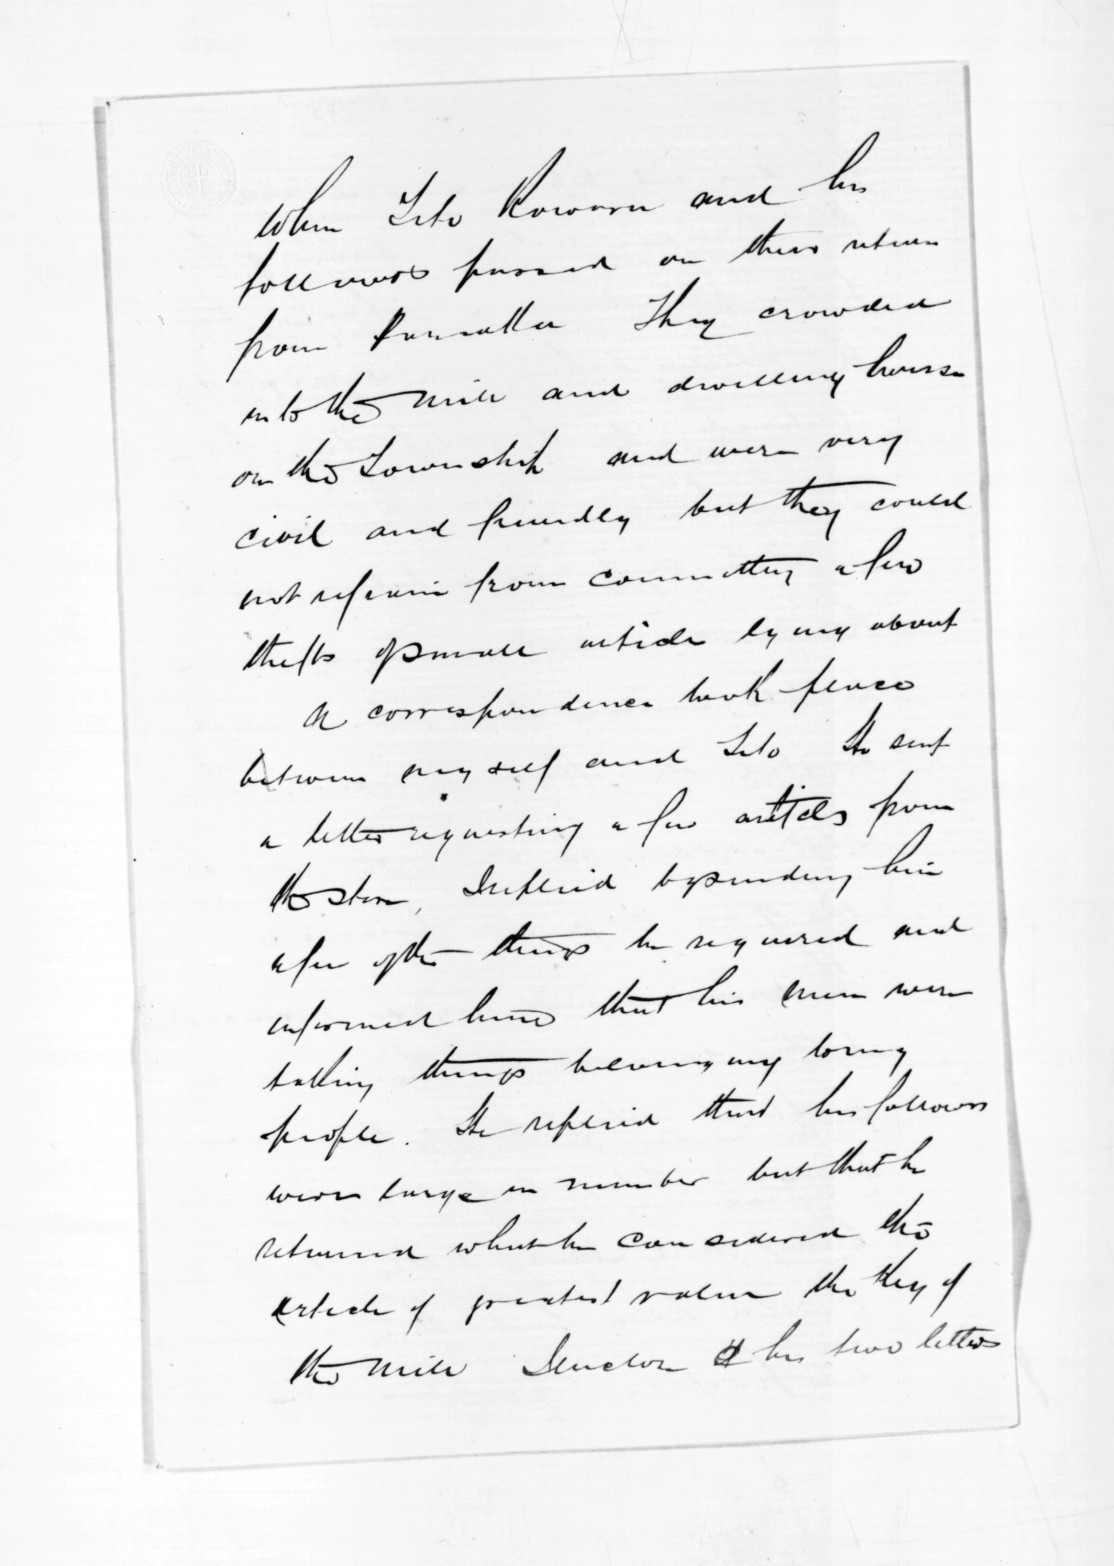 When Tito Kowaru and his
followers passed on their return
from Parnatta They crowded
into the Mill and dwelling houses
on the Township and were very
civil and friendly but they could
not refrain from committing a few
thefts of small article lying about
A correspondence took place
between myself and Tito He sent
a letter requesting a few articles from
the store, I replied by sending him
a few of the things he required and
informed him that his men were
taking things belonging to my
people. He replied that his followers
were large in number but that he
returned what he considered the
article of greatest value the Key of
the Mill I enclose his two letters